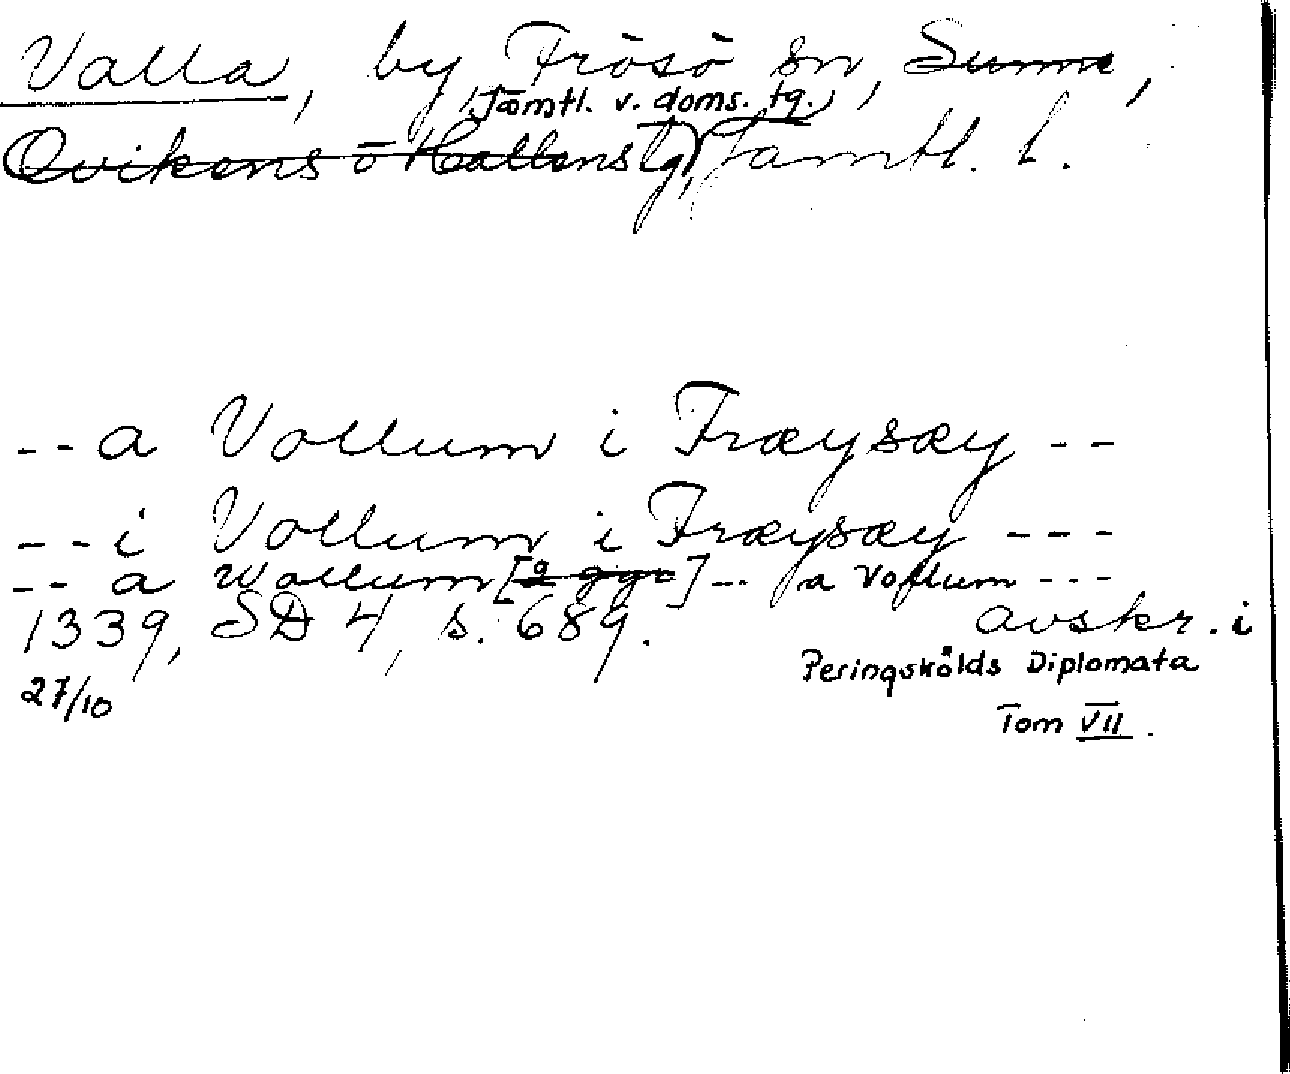 Valla, by Frösö sn, Sunne,
(Jämtl. v. doms. tg.),
Ovikens o Hallens tg), Jämtl. l.
-- a Vollum i Fræysæy --
-- i Vollum i Fræysæy ---
-- a Wollum [2 ggr] -- a Vollum ---
1339, SD 4, s. 689. avskr. i
27/10 Peringskölds Diplomata
Tom VII.